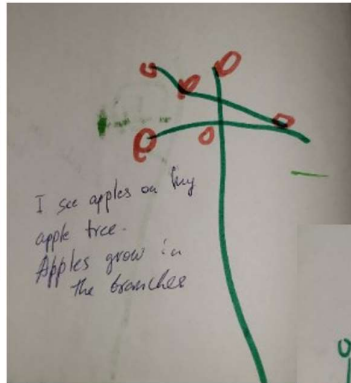 I see apples on my
apple tree.
Apples grow in
the branches